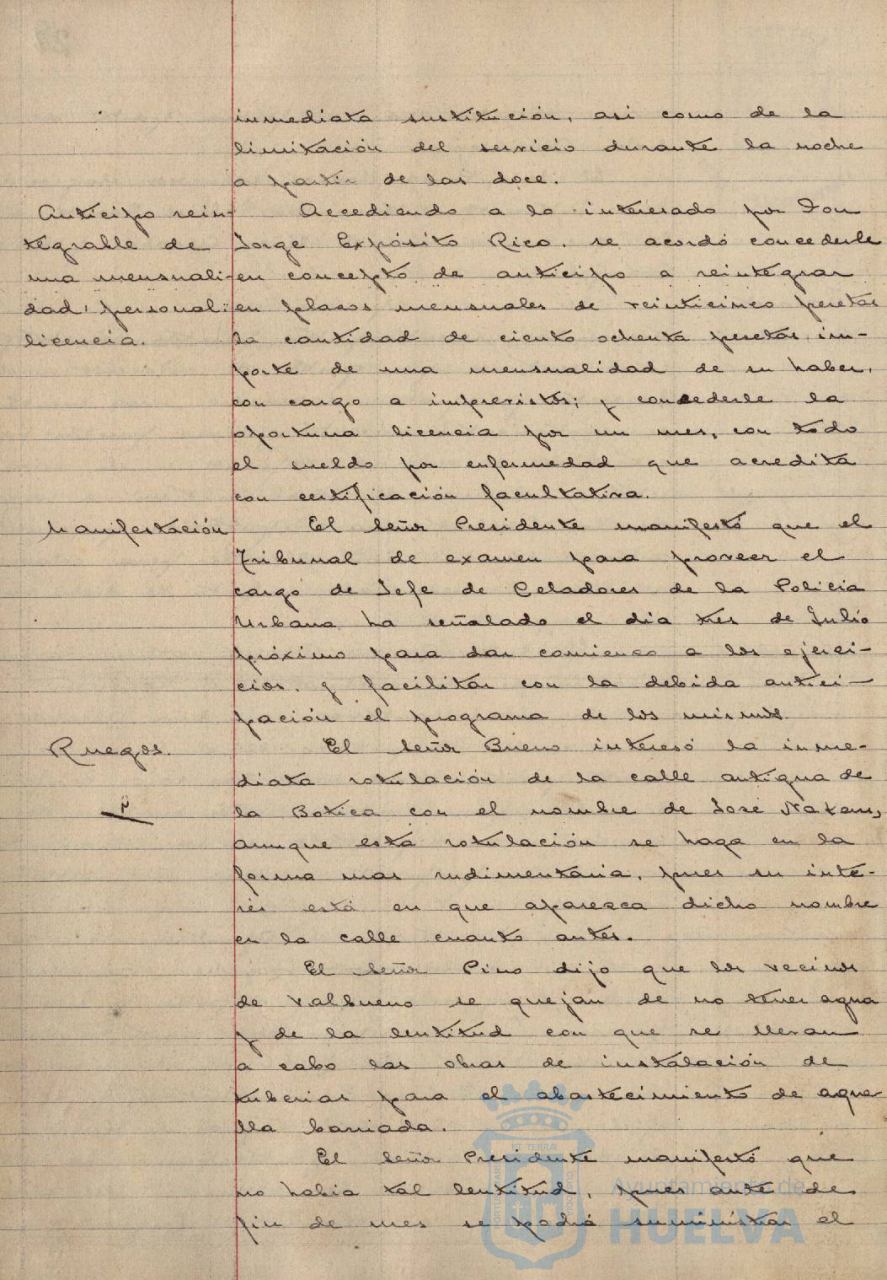 inmediata sustitución, asi como de la
limitación del servicio durante la noche
a partir de las doce.
Anticipo rein-
tegrable de
una mensuali-
dad, personal:
licencia.
Accediendo a lo interesado por Don
Jorge Expósito Rico. se acordó concederle
en concepto de anticipo a reintegrar
en plasos mensuales de veinticinco pesetas
la cantidad de ciento ochenta pesetas, im-
porte de una mensualidad de su haber,
con cargo a imprevistos; y concederle la
oportuna licencia por un mes, con todo
el sueldo por enfermedad que acredita
con certificación facultativa.
Manifestación
El Señor Presidente manifestó que el
Tribunal de examen para proveer el
cargo de Jefe de Celadores de la Policia
Urbana ha señalado el dia tres de Julio
próximo para dar comienso a los ejerci-
cios. y facilitar con la debida antici-
pación el programa de los mismos.
Ruegos.
El Señor Bueno interesó la inme-
diata rotulación de la calle antigua de
la Botica con el nombre de José Nakens,
aunque esta rotulación se haga en la
forma mas rudimentaria, pues su inte-
rés está en que aparezca dicho nombre
en la calle cuanto antes.
El Señor Pino dijo que los vecinos
de Valbueno se quejan de no tener agua
y de la lentitud con que se llevan
a cabo las obras de instalación de
tuberias para el abastecimiento de aque-
lla barriada.
El Señor Presidente manifestó que
no habia tal lentitud, pues ante de
fin de mes se podrá suministrar el
Ayuntamiento de
HUELVA